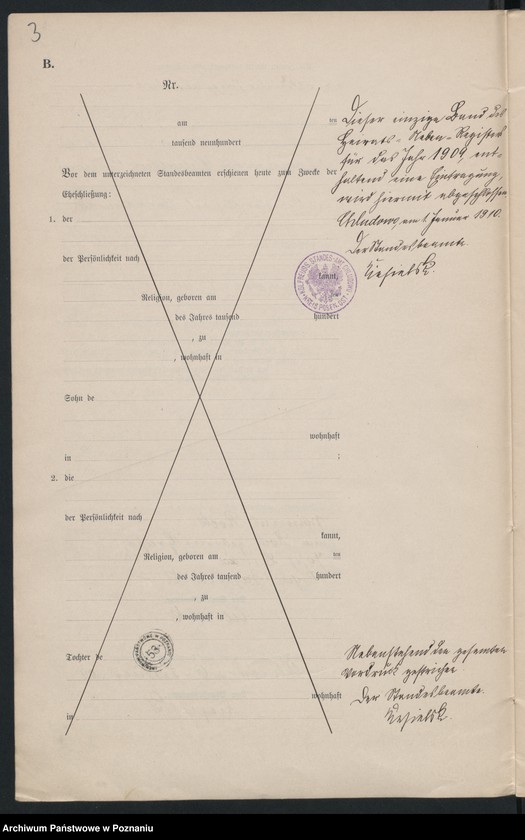 3
B.
Nr.
am ten
tausend neunhundert
Vor dem unterzeichneten Standesbeamten erschienen heute zum Zwecke der
Eheschließung:
1. der
der Persönlichkeit nach
kannt,
Religion, geboren am
des Jahres tausend hundert
, zu
, wohnhaft in
Sohn de
wohnhaft
in ;
2. die
der Persönlichkeit nach
kannt,
Religion, geboren am ten
des Jahres tausend hundert
, zu
, wohnhaft in
Tochter de
wohnhaft
in
Dieser einzige Band des
Heirats-Neben-Registers
für das Jahr 1909, ent-
haltend eine Eintragung,
wird hiermit abgeschlossen
Chludowo, am 1. Januar 1910.
Der Standesbeamte
Nebenstehenden gesamten
Vordruck gestrichen
Der Standesbeamte.
53
Archiwum Państwowe w Poznaniu